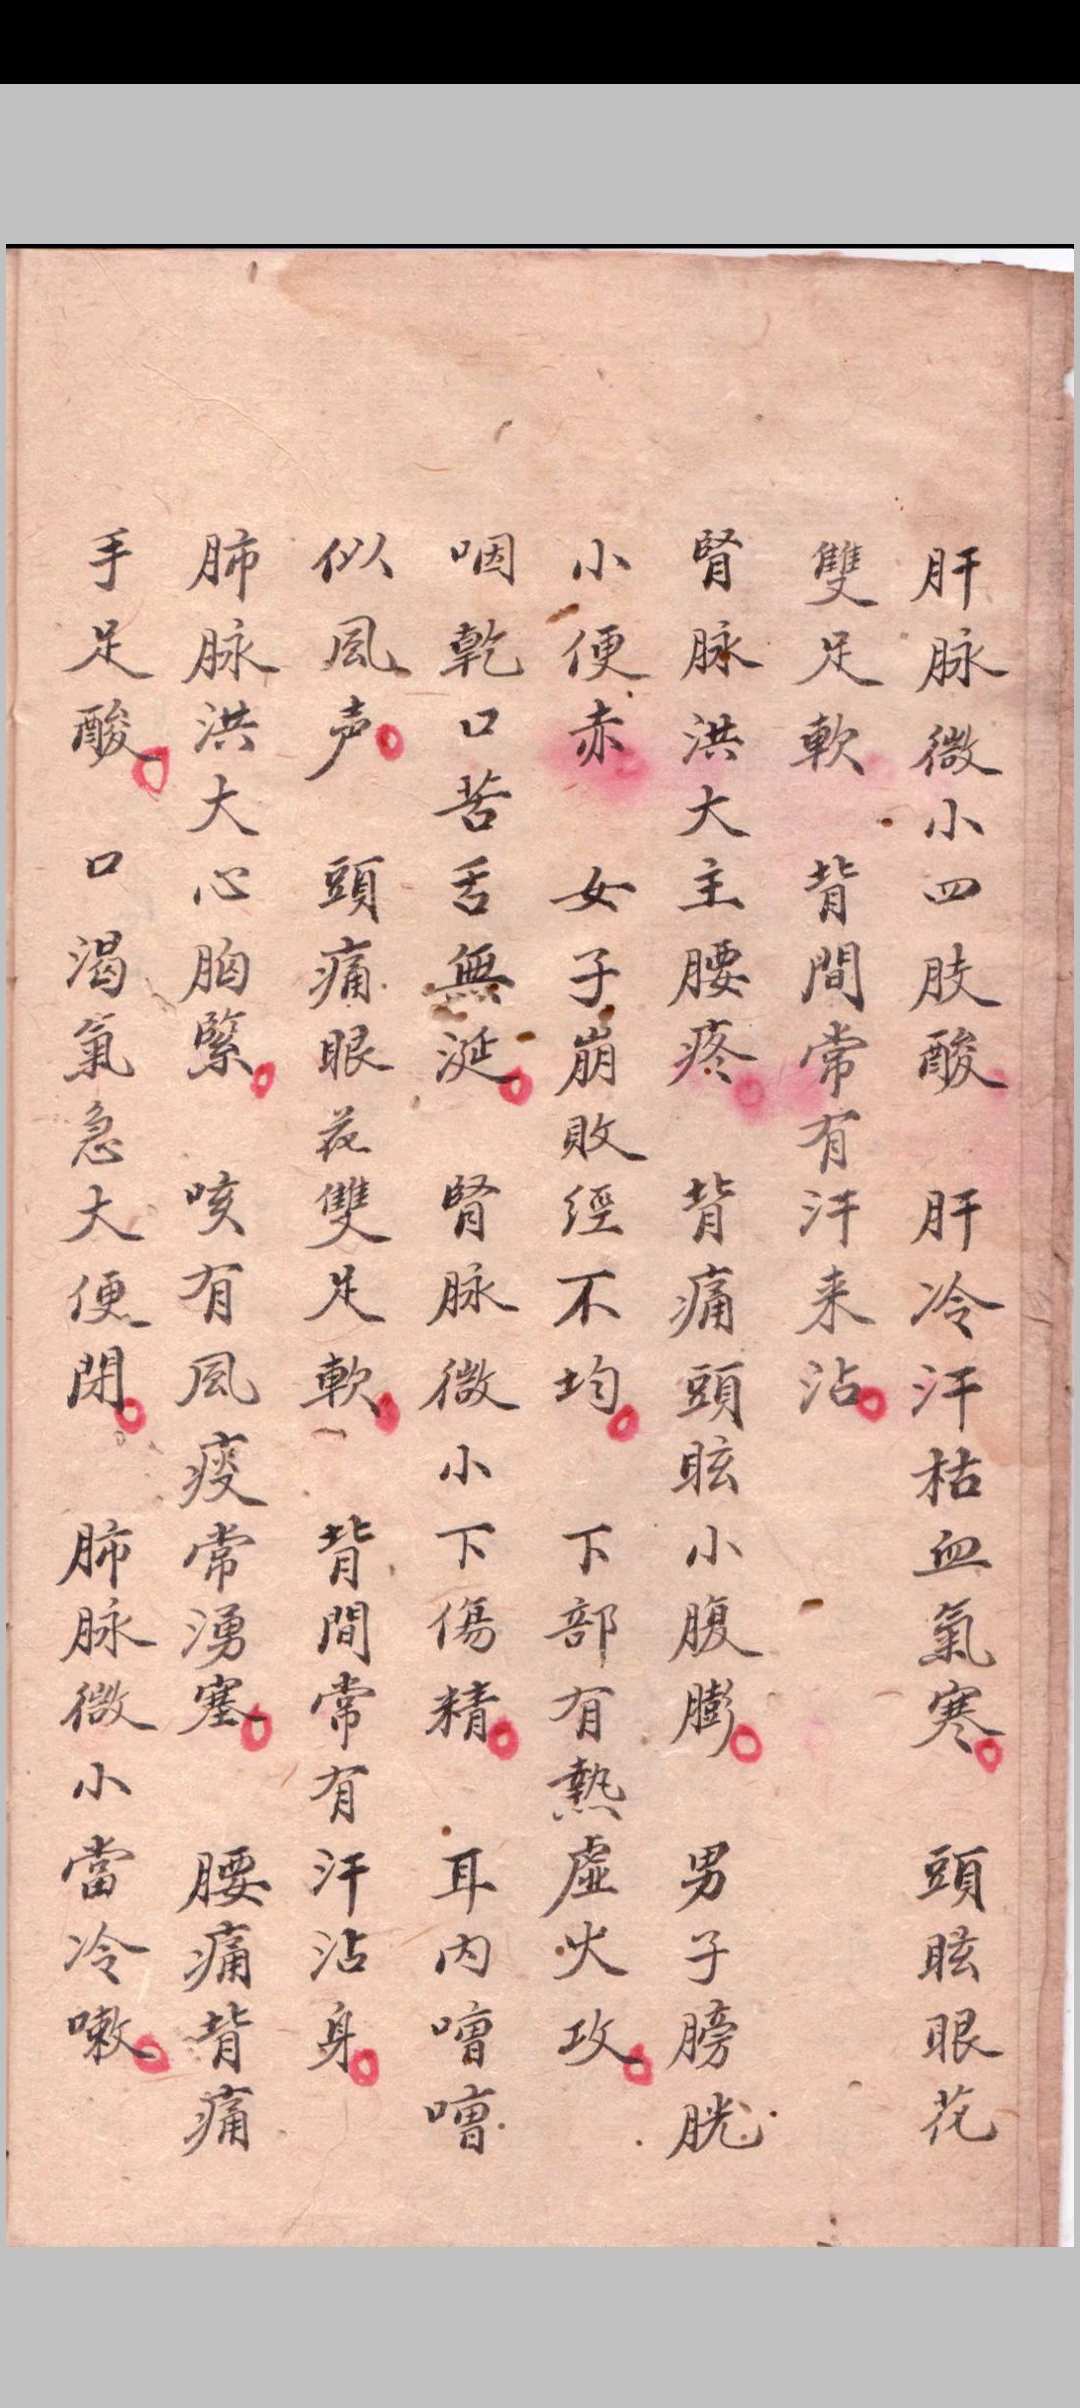 肝脉微小四肢酸 肝冷汗枯血氣寒 頭眩眼花
雙足軟 背間常有汗来沾
腎脉洪大主腰疼 背痛頭眩小腹膨 男子膀胱
小便赤 女子崩敗經不均 下部有熱虛火攻
咽乾口苦舌無涎 腎脉微小下傷精 耳内嘈嘈
似風声 頭痛眼花雙足軟 背間常有汗沾身
肺脉洪大心胸緊 咳有風痰常湧塞 腰痛背痛
手足酸 口渴氣急大便閉 肺脉微小當冷嗽